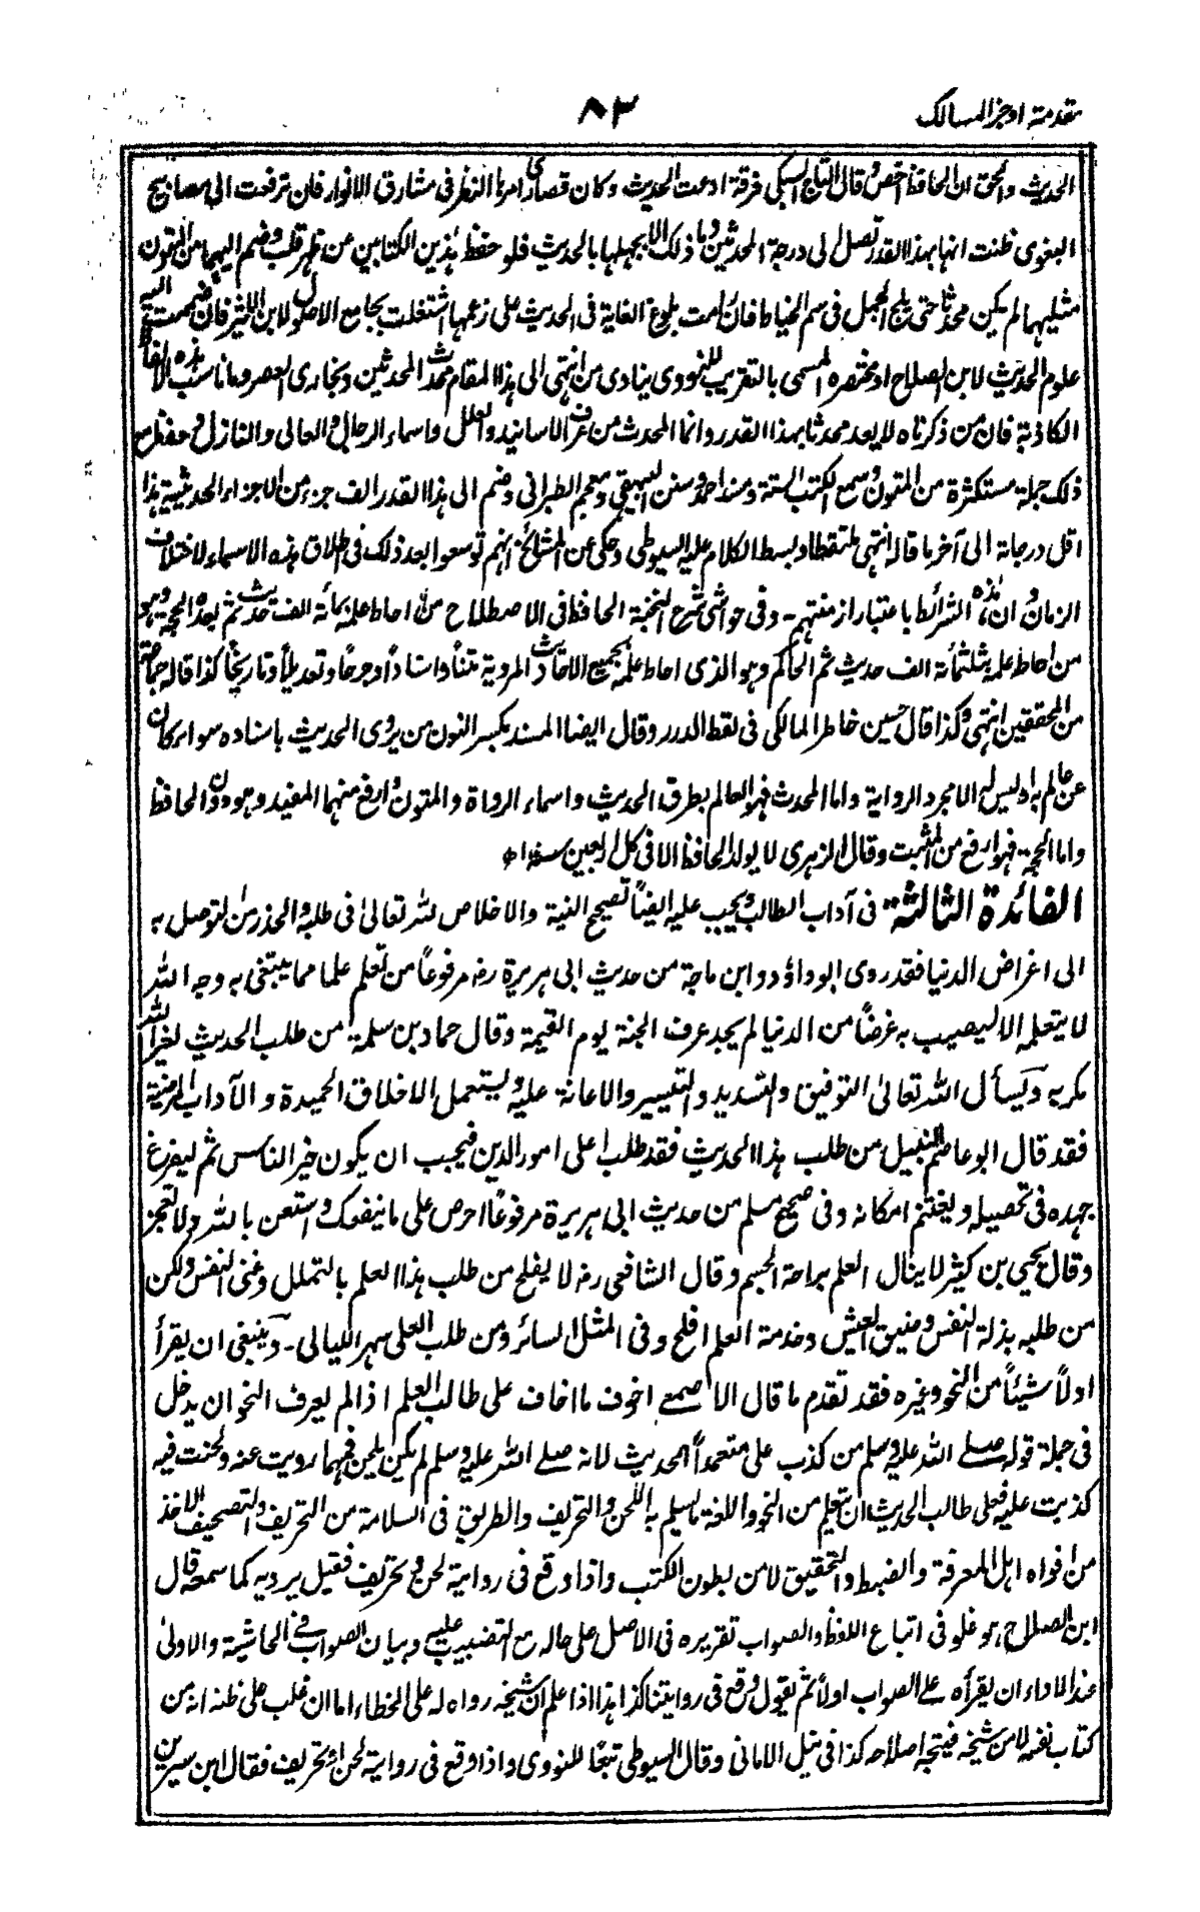 مقدمة اوجز المسالك
٨٣
الحديث والحق ان الحافظ اخص وقال التاج السبكي فرقة ادعت الحديث وكان قصارى امرها النظر في مشارق الانوار فان ترفعت الى مصابيح
البغوي ظنت انها بهذا القدر تصل الى درجة المحدثين وما ذلك الا بجهلها بالحديث فلو حفظ هذين الكتابين عن ظهر قلب وضم اليهما من المتون
مثليهما لم يكن محدثا حتى يلج الجمل في سم الخياط فان رامت بلوغ الغاية في الحديث على زعمها اشتغلت بجامع الاصول لابن الاثير فان ضمت اليه
علوم الحديث لابن الصلاح او مختصره المسمى بالتقريب للنووي ينادى من انتهى الى هذا المقام محدث المحدثين وبخارى العصر وما ناسب هذه الالفاظ
الكاذبة فان من ذكرناه لا يعد محدثا بهذا القدر وانما المحدث من عرف الاسانيد والعلل واسماء الرجال والعالى والنازل وحفظ مع
ذلك جملة مستكثرة من المتون وسمع الكتب الستة ومسند احمد وسنن البيهقي ومعجم الطبراني وضم الى هذا القدر الف جزء من الاجزاء الحديثية هذا
اقل درجاته الى آخر ما قاله انتهى ملتقطا وبسط الكلام عليه السيوطي وحكى عن المشائخ انهم توسعوا بعد ذلك في اطلاق هذه الاسماء لاختلاف
الزمان وان هذه الشرائط باعتبار ازمنتهم - وفي حواشي شرح النخبة الحافظ في الاصطلاح من احاط علمه بمائة الف حديث ثم بعده الحجة وهو
من احاط علمه بثلثمائة الف حديث ثم الحاكم وهو الذي احاط علمه بجميع الاحاديث المروية متناً واسناداً وجرحاً وتعديلاً وتاريخاً كذا قاله جماعة
من المحققين انتهى وكذا قال حسين خاطر المالكي في لقط الدرر وقال ايضا المسند بكسر النون من يروى الحديث باسناده سواء كان
عن علم به او ليس له الا مجرد الرواية واما المحدث فهو العالم بطرق الحديث واسماء الرواة والمتون وارفع منهما المفيد وهو دون الحافظ
واما الحجة فهو ارفع من المثبت وقال الزهري لا يولد الحافظ الا في كل اربعين سنة اه
الفائدة الثالثة في آداب الطالب ويجب عليه ايضاً تصحيح النية والاخلاص لله تعالىٰ في طلبه والحذر من التوصل به
الى اغراض الدنيا فقد روى ابو داؤد وابن ماجة من حديث ابى هريرة رضه مرفوعاً من تعلم علما مما يبتغى به وجه الله
لا يتعلمه الا ليصيب به غرضاً من الدنيا لم يجد عرف الجنة يوم القيمة وقال حماد بن سلمة من طلب الحديث لغير الله
مكر به ويسأل الله تعالىٰ التوفيق والتسديد والتيسير والاعانة عليه ويستعمل الاخلاق الحميدة والآداب المرضية
فقد قال ابو عاصم النبيل من طلب هذا الحديث فقد طلب اعلى امور الدين فيجب ان يكون خير الناس ثم ليفرغ
جهده في تحصيله ويغتنم امكانه وفي صحيح مسلم من حديث ابى هريرة مرفوعاً احرص على ما ينفعك واستعن بالله ولا تعجز
وقال يحيي بن كثير لا ينال العلم براحة الجسم وقال الشافعي رضه لا يفلح من طلب هذا العلم بالتملل وغنى النفس ولكن
من طلبه بذلة النفس وضيق العيش وخدمة العلم افلح وفي المثل السائر ومن طلب العلى سهر الليالى - وينبغى ان يقرأ
اولاً شيئاً من النحو وغيره فقد تقدم ما قال الاصمعے اخوف ما اخاف على طالب العلم اذا لم يعرف النحو ان يدخل
في جملة قوله صلے الله عليه وسلم من كذب على متعمداً الحديث لانه صلے الله عليه وسلم لم يكن يلحن فمهما رويت عنه ولحنت فيه
كذبت عليه فعلى طالب الحديث ان يتعلم من النحو واللغة ما يسلم به اللحن والتحريف والطريق في السلامة من التحريف والتصحيف الاخذ
من افواه اهل المعرفة والضبط والتحقيق لا من بطون الكتب واذا وقع في رواية لحن وتحريف فقيل يرويه كما سمعه قال
ابن الصلاح هو غلو في اتباع اللفظ والصواب تقريره في الاصل على حاله مع التضبيب عليه وبيان الصواب في الحاشية والاولىٰ
عند الاداء ان يقرأه على الصواب اولاً ثم يقول وقع في روايتنا كذا هذا اذا علم ان شيخه رواه له على الخطاء اما ان غلب على ظنه انه من
كتاب نفسه لا من شيخه فيتجه اصلاحه كذا في نيل الامانى وقال السيوطي تبعاً للنووى واذا وقع في رواية لحن او تحريف فقال ابن سيرين